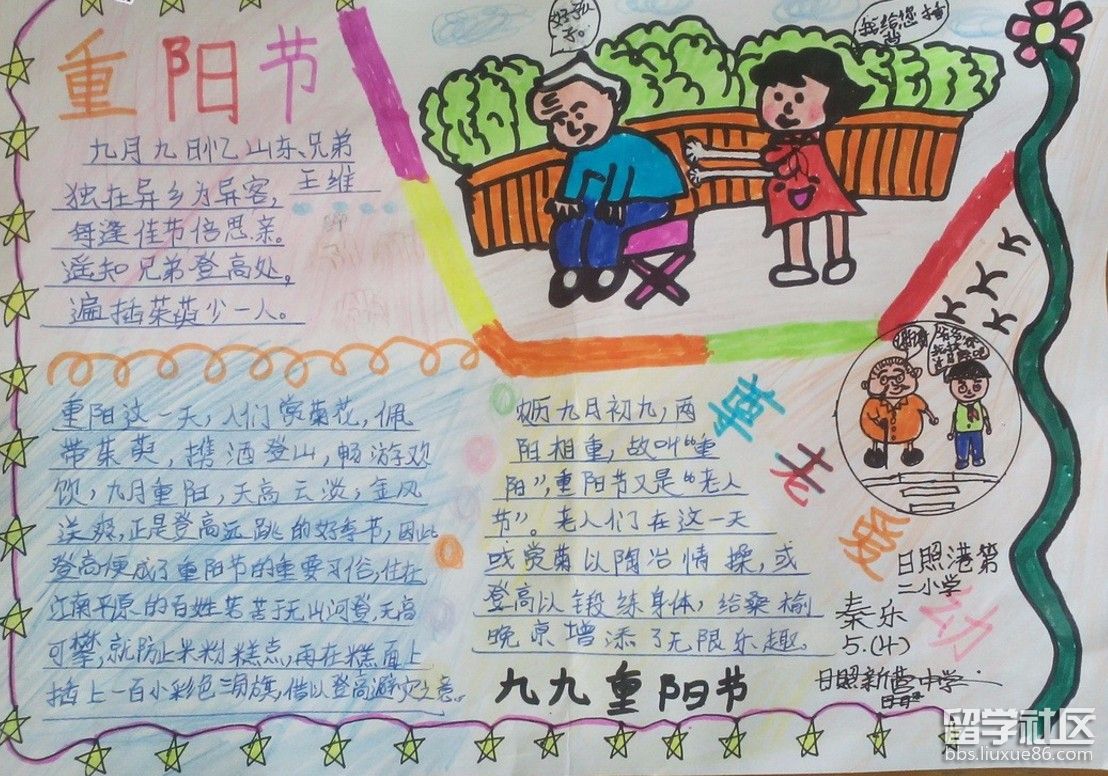 重阳节
九月九日忆山东兄弟
王维
独在异乡为异客，
每逢佳节倍思亲。
遥知兄弟登高处，
遍插茱萸少一人。
好舒
我给您捶
重阳这一天，人们赏菊花，佩
带茱萸，携酒登山，畅游欢
饮，九月重阳，天高云淡，金风
送爽，正是登高远跳的好季节，因此
登高便成了重阳节的重要习俗，住在
江南平原的百姓苦于无山河登，无高
可攀，就防止米粉糕点，再在糕面上
插上一百小彩色三角旗，借以登高避灾之意。
九月初九，两
阳相重，故叫“重
阳”，重阳节又是“老人
节”。老人们在这一天
或赏菊以陶冶情操，或
登高以锻练身体，给桑榆
晚京增添了无限乐趣。
九九重阳节
尊老爱幼
谢谢
爷爷我
日照港第
二小学
秦乐
5.(4)
日照新营中学
留学社区
bbs.liuxue86.com